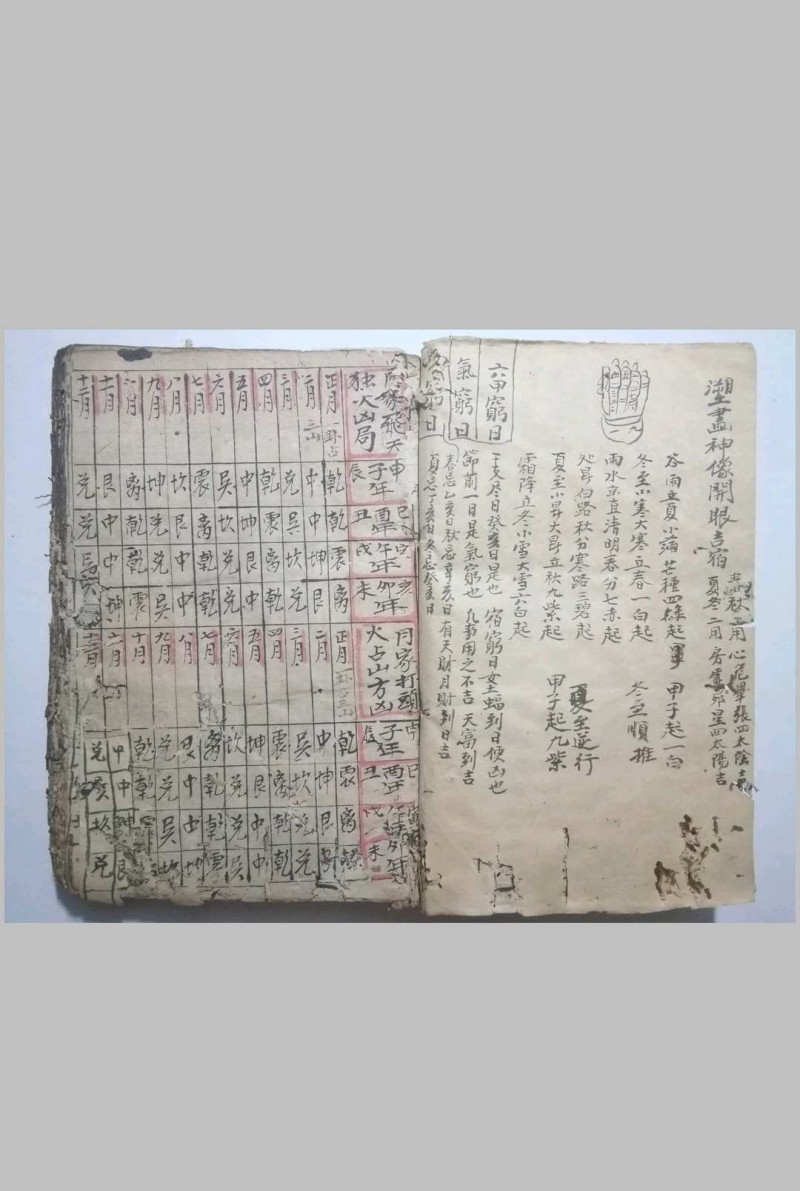 塑畫神像開眼吉宿
春秋二用心危畢張四太陰吉
夏冬二用房虛昴星四太陽吉
谷雨立夏小滿芒種四綠起
甲子起一白
冬至小寒大寒立春一白起
冬至順推
雨水京直清明春分七赤起
处暑白路秋分寒路三碧起
夏至逆行
夏至小暑大暑立秋九紫起
甲子起九紫
霜降立冬小雪大雪六白起
六甲窮日
干支尽日癸亥日是也
宿窮日女土蝠到日便凶也
氣窮日
節前一日是氣窮也
凡事用之不吉
天富到吉
窮日
春忌乙亥日秋忌辛亥日有天財月財到日吉
夏忌丁亥日冬忌癸亥日
飛天
独火凶局
申子年辰
巳酉年丑
午年戌
亥卯年未
正月 一卦占三山
乾
乾
震
离
二月
中
中
坤
艮
三月
兑
吴
坎
兑
四月
乾
离
乾
乾
五月
坤
中
中
中
六月
吴
坎
兑
吴
七月
震
离
乾
乾
八月
坎
艮
艮
中
九月
坤
兑
兑
吴
月
离
乾
乾
震
十一月
艮
中
中
坤
十二月
兑
兑
月家打頭
火占山方凶
申子年辰
巳酉年丑
戌
未
正月 一卦占三山
乾
震
离
二月
中
坤
艮
三月
兑
坎
兑
兑
四月
震
离
乾
乾
五月
坤
艮
中
中
六月
坎
兑
兑
吴
七月
离
乾
乾
震
八月
艮
中
中
坤
九月
兑
兑
吴
坎
十月
乾
乾
十一月
中
中
坤
艮
十二月
兑
坎
兑